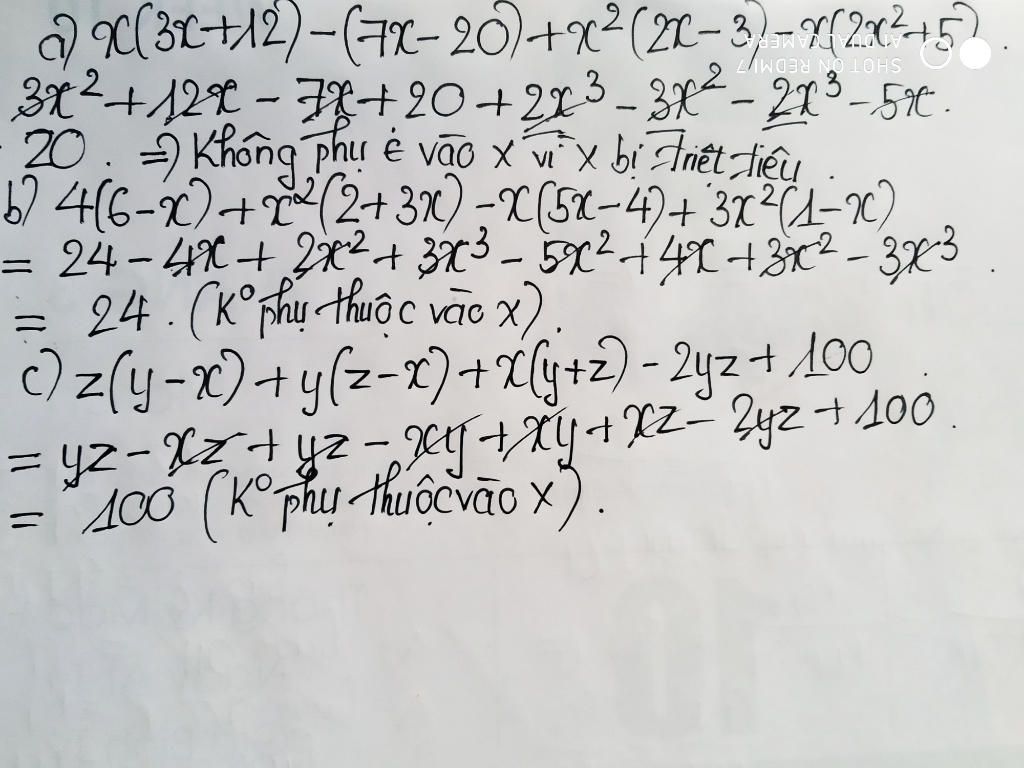 a) x(3x+12)-(7x-20)+x²(2x-3)-x(2x²+5).
3x²+12x-7x+20+2x³-3x²-2x³-5x.
20. => Không phụ é vào x vì x bị triệt tiêu.
b) 4(6-x)+x²(2+3x)-x(5x-4)+3x²(1-x)
= 24-4x+2x²+3x³-5x²+4x+3x²-3x³.
= 24. (K° phụ thuộc vào x).
c) z(y-x)+y(z-x)+x(y+z)-2yz+100.
= yz-xz+yz-xy+xy+xz-2yz+100.
= 100 (K° phụ thuộc vào x).
SHOT ON REDMI 7
AI DUAL CAMERA